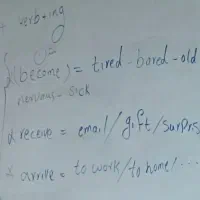 + verb + ing
(become) = tired - bored - old
nervous - sick
receive = email / gift / surpris
arrive = to work / to home / ...